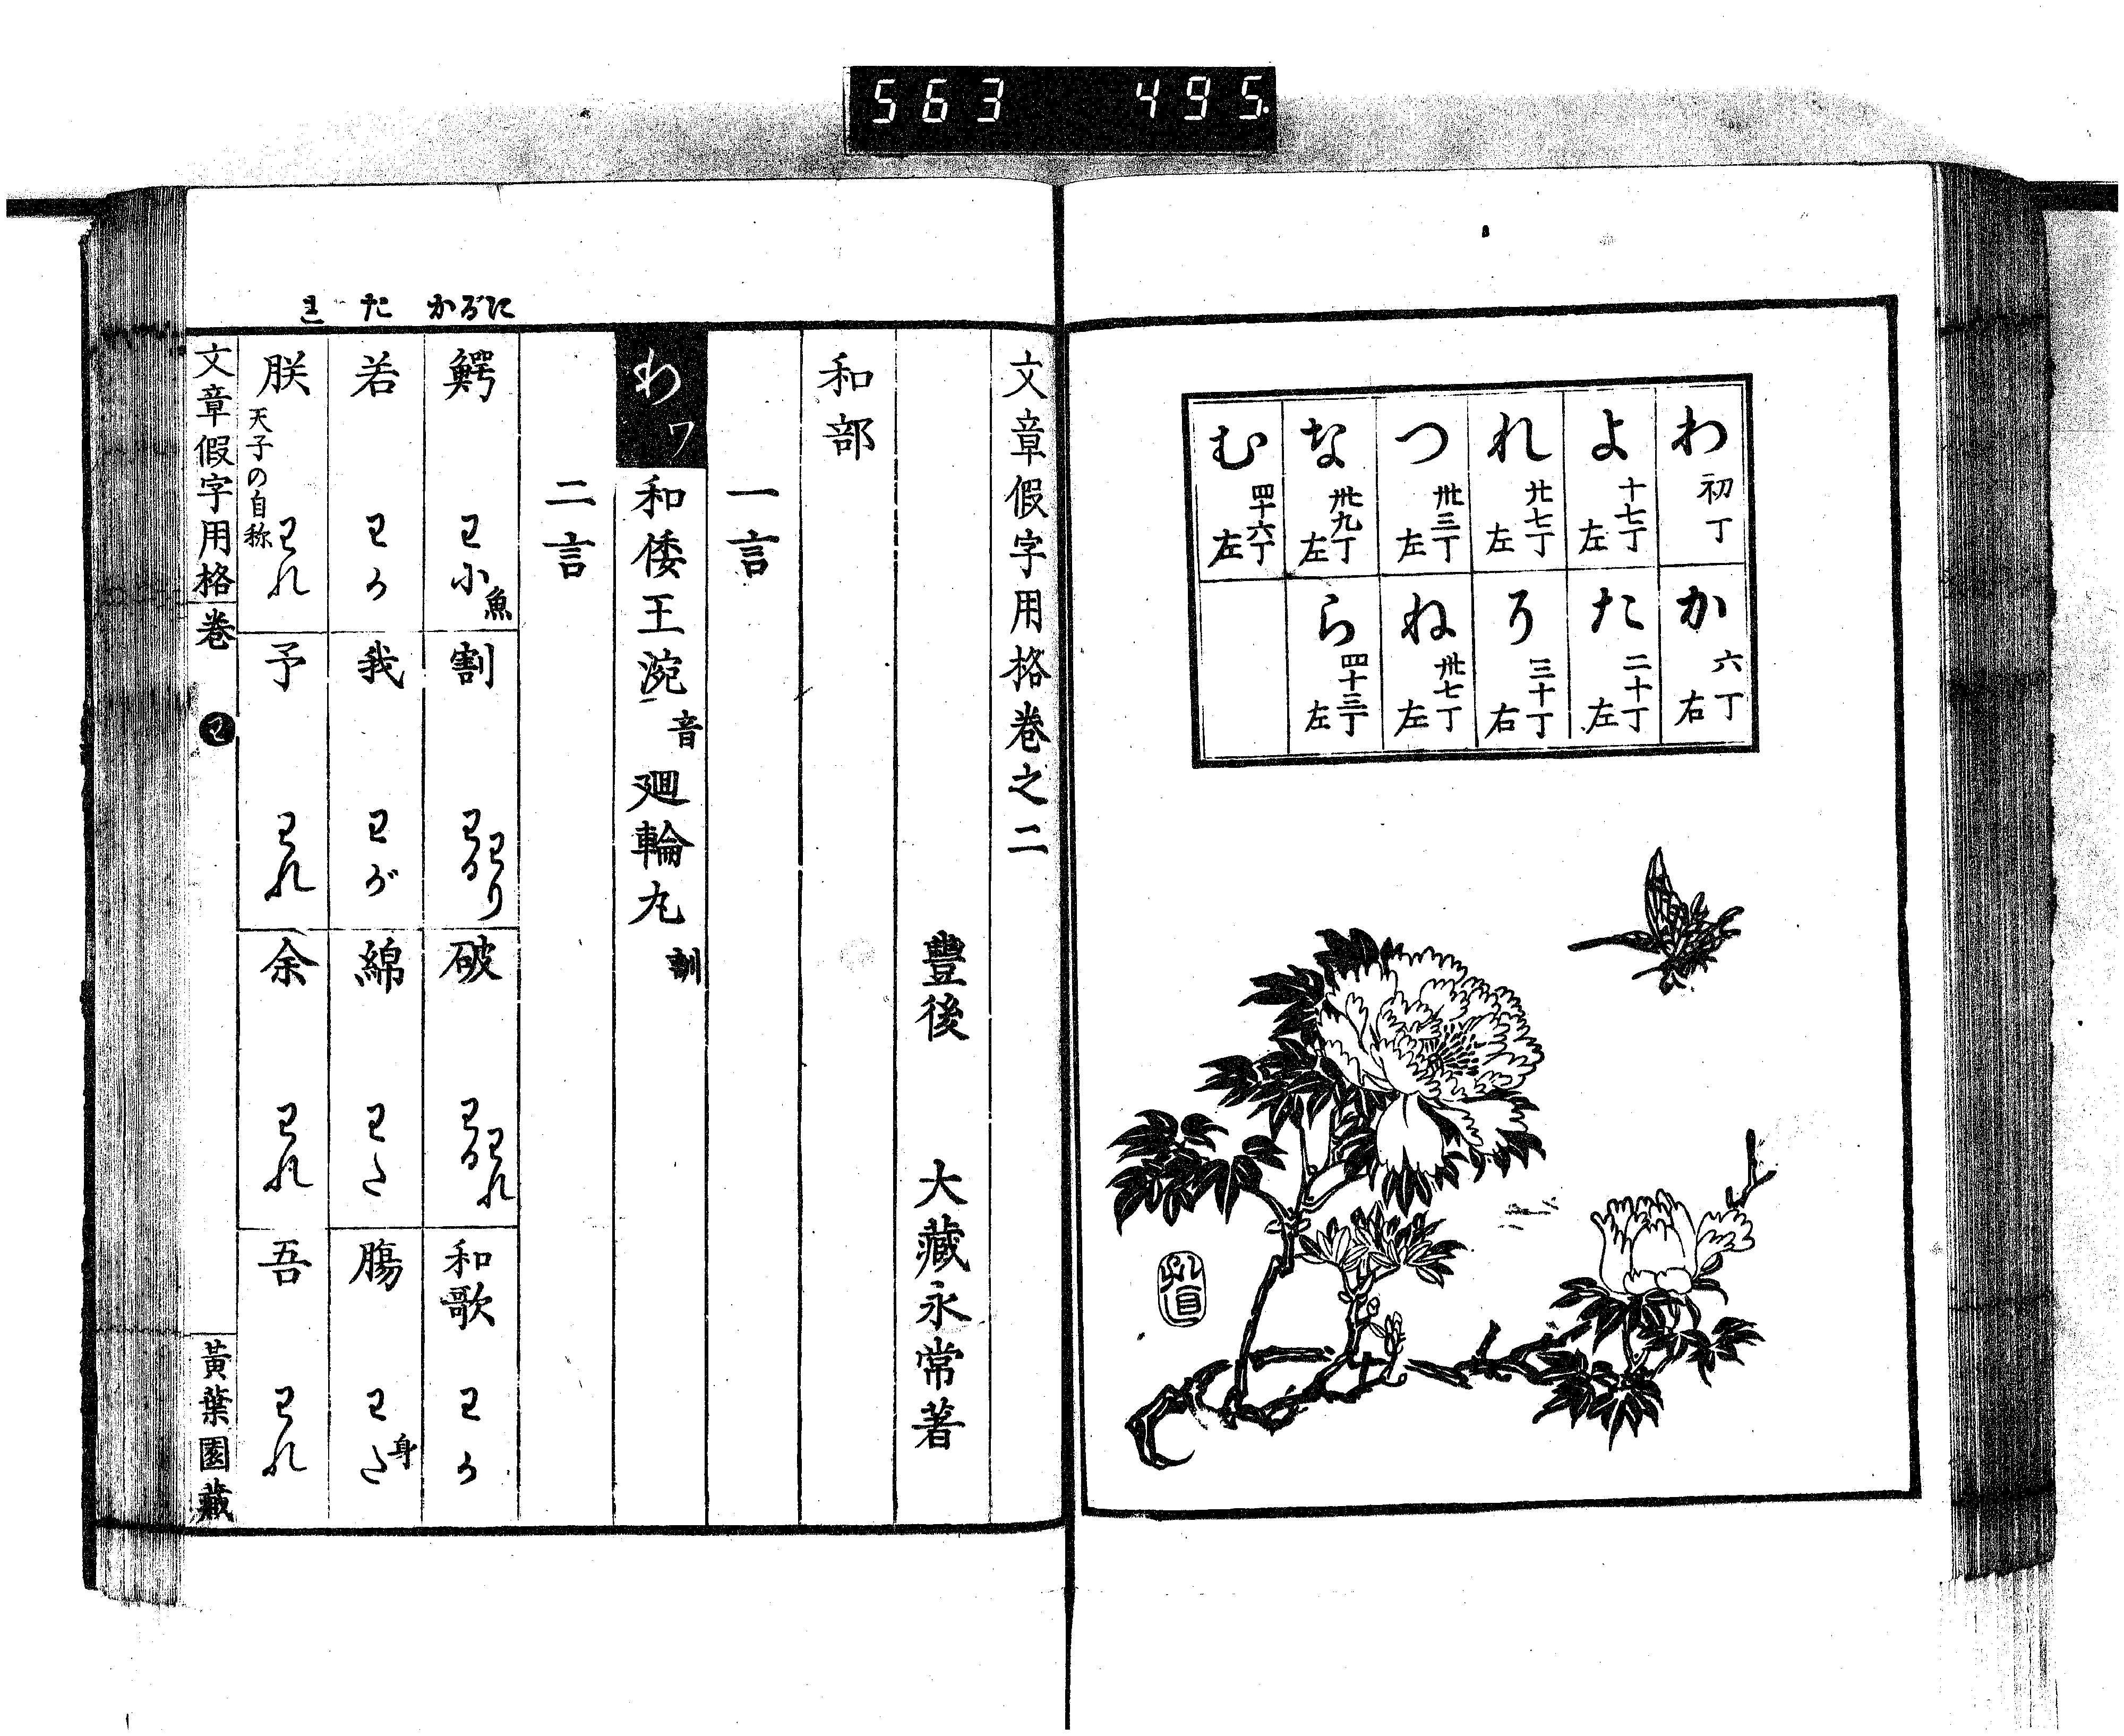 563 495
わ 初丁
よ 十七丁左
れ 廿七丁左
つ 卅三丁左
な 卅九丁左
む 四十六丁左
か 六丁右
た 二十丁左
そ 三十丁右
ね 卅七丁左
ら 四十三丁左
文章假字用格巻之二
豐後 大藏永常著
和部
一言
わ ワ 和倭王涴音 廻輪丸訓
二言
にぞか た れ
鰐 わに魚
割 わる わり
破 わる われ
和歌 わか
若 わか
我 わが
綿 わた
膓 わた身
朕 天子の自称 われ
予 われ
余 われ
吾 われ
文章假字用格 巻 わ 黄葉園藏